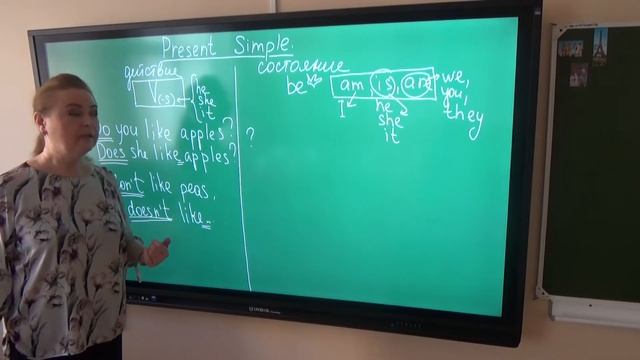 Present Simple.
действие
V(-s)
he
she
it
Do you like apples?
Does she like apples?
?
don't like peas,
doesn't like
состояние
be
am (is), are
I
he
she
it
we,
you,
they